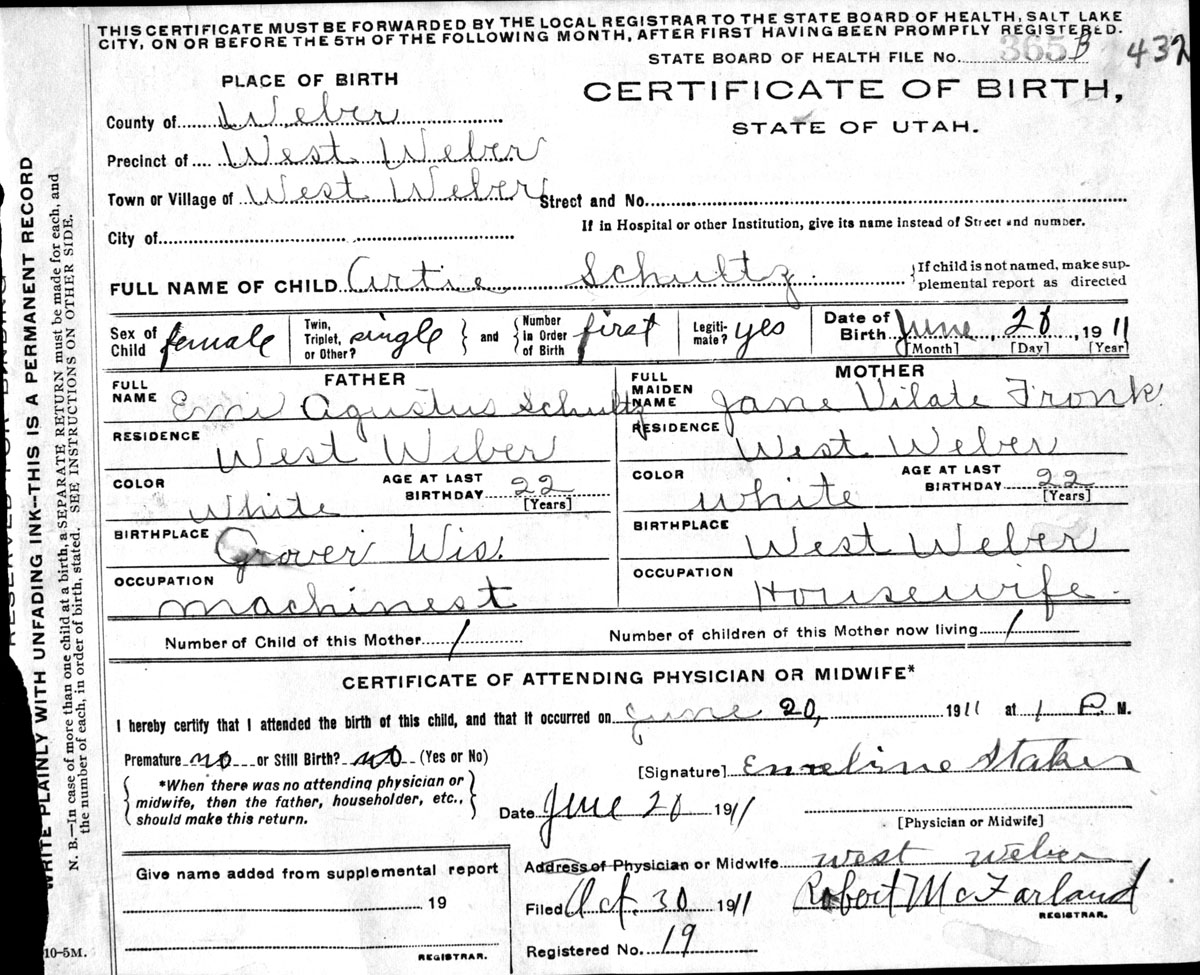 THIS CERTIFICATE MUST BE FORWARDED BY THE LOCAL REGISTRAR TO THE STATE BOARD OF HEALTH, SALT LAKE
CITY, ON OR BEFORE THE 5TH OF THE FOLLOWING MONTH, AFTER FIRST HAVING BEEN PROMPTLY REGISTERED.
STATE BOARD OF HEALTH FILE No. 365B 432
PLACE OF BIRTH
CERTIFICATE OF BIRTH,
STATE OF UTAH.
County of Weber
Precinct of West Weber
Town or Village of West Weber Street and No.
If in Hospital or other Institution, give its name instead of Street and number.
City of
FULL NAME OF CHILD Artie Schultz
If child is not named, make sup-
plemental report as directed
Sex of Child female Twin, Triplet, or Other? single and Number in Order of Birth first Legiti-mate? yes Date of Birth June 28, 1911
[Month] [Day] [Year]
FATHER MOTHER
FULL NAME Agustus Schultz FULL MAIDEN NAME Jane Vilate Fronk
RESIDENCE West Weber RESIDENCE West Weber
COLOR White AGE AT LAST BIRTHDAY 22 [Years] COLOR White AGE AT LAST BIRTHDAY 22 [Years]
BIRTHPLACE Grover Wis. BIRTHPLACE West Weber
OCCUPATION machinest OCCUPATION Housewife
Number of Child of this Mother 1 Number of children of this Mother now living 1
CERTIFICATE OF ATTENDING PHYSICIAN OR MIDWIFE*
I hereby certify that I attended the birth of this child, and that it occurred on June 20, 1911 at 1 P. M.
Premature no or Still Birth? no (Yes or No)
[Signature] Emeline Staker
*When there was no attending physician or
midwife, then the father, householder, etc.,
should make this return.
Date June 20 1911
[Physician or Midwife]
Address of Physician or Midwife West Weber
Give name added from supplemental report
19
REGISTRAR.
Filed Oct. 30 1911 Robert McFarland
REGISTRAR.
Registered No. 19
10-5M.
WRITE PLAINLY WITH UNFADING INK--THIS IS A PERMANENT RECORD
N. B.—In case of more than one child at a birth, a SEPARATE RETURN must be made for each, and
the number of each, in order of birth, stated. SEE INSTRUCTIONS ON OTHER SIDE.